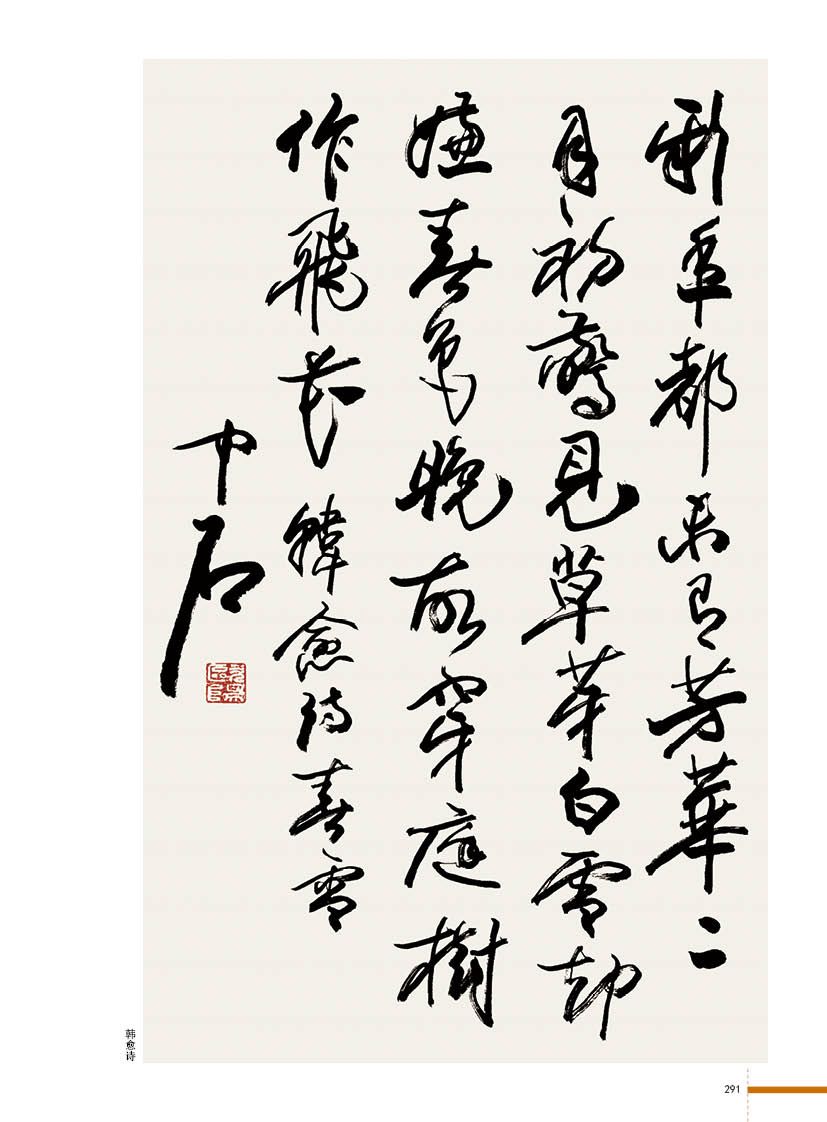 新年都未有芳華二
月初驚見草芽白雪却
嫌春色晚故穿庭樹
作飛花 韓愈詩春雪
中石
韩愈诗
291